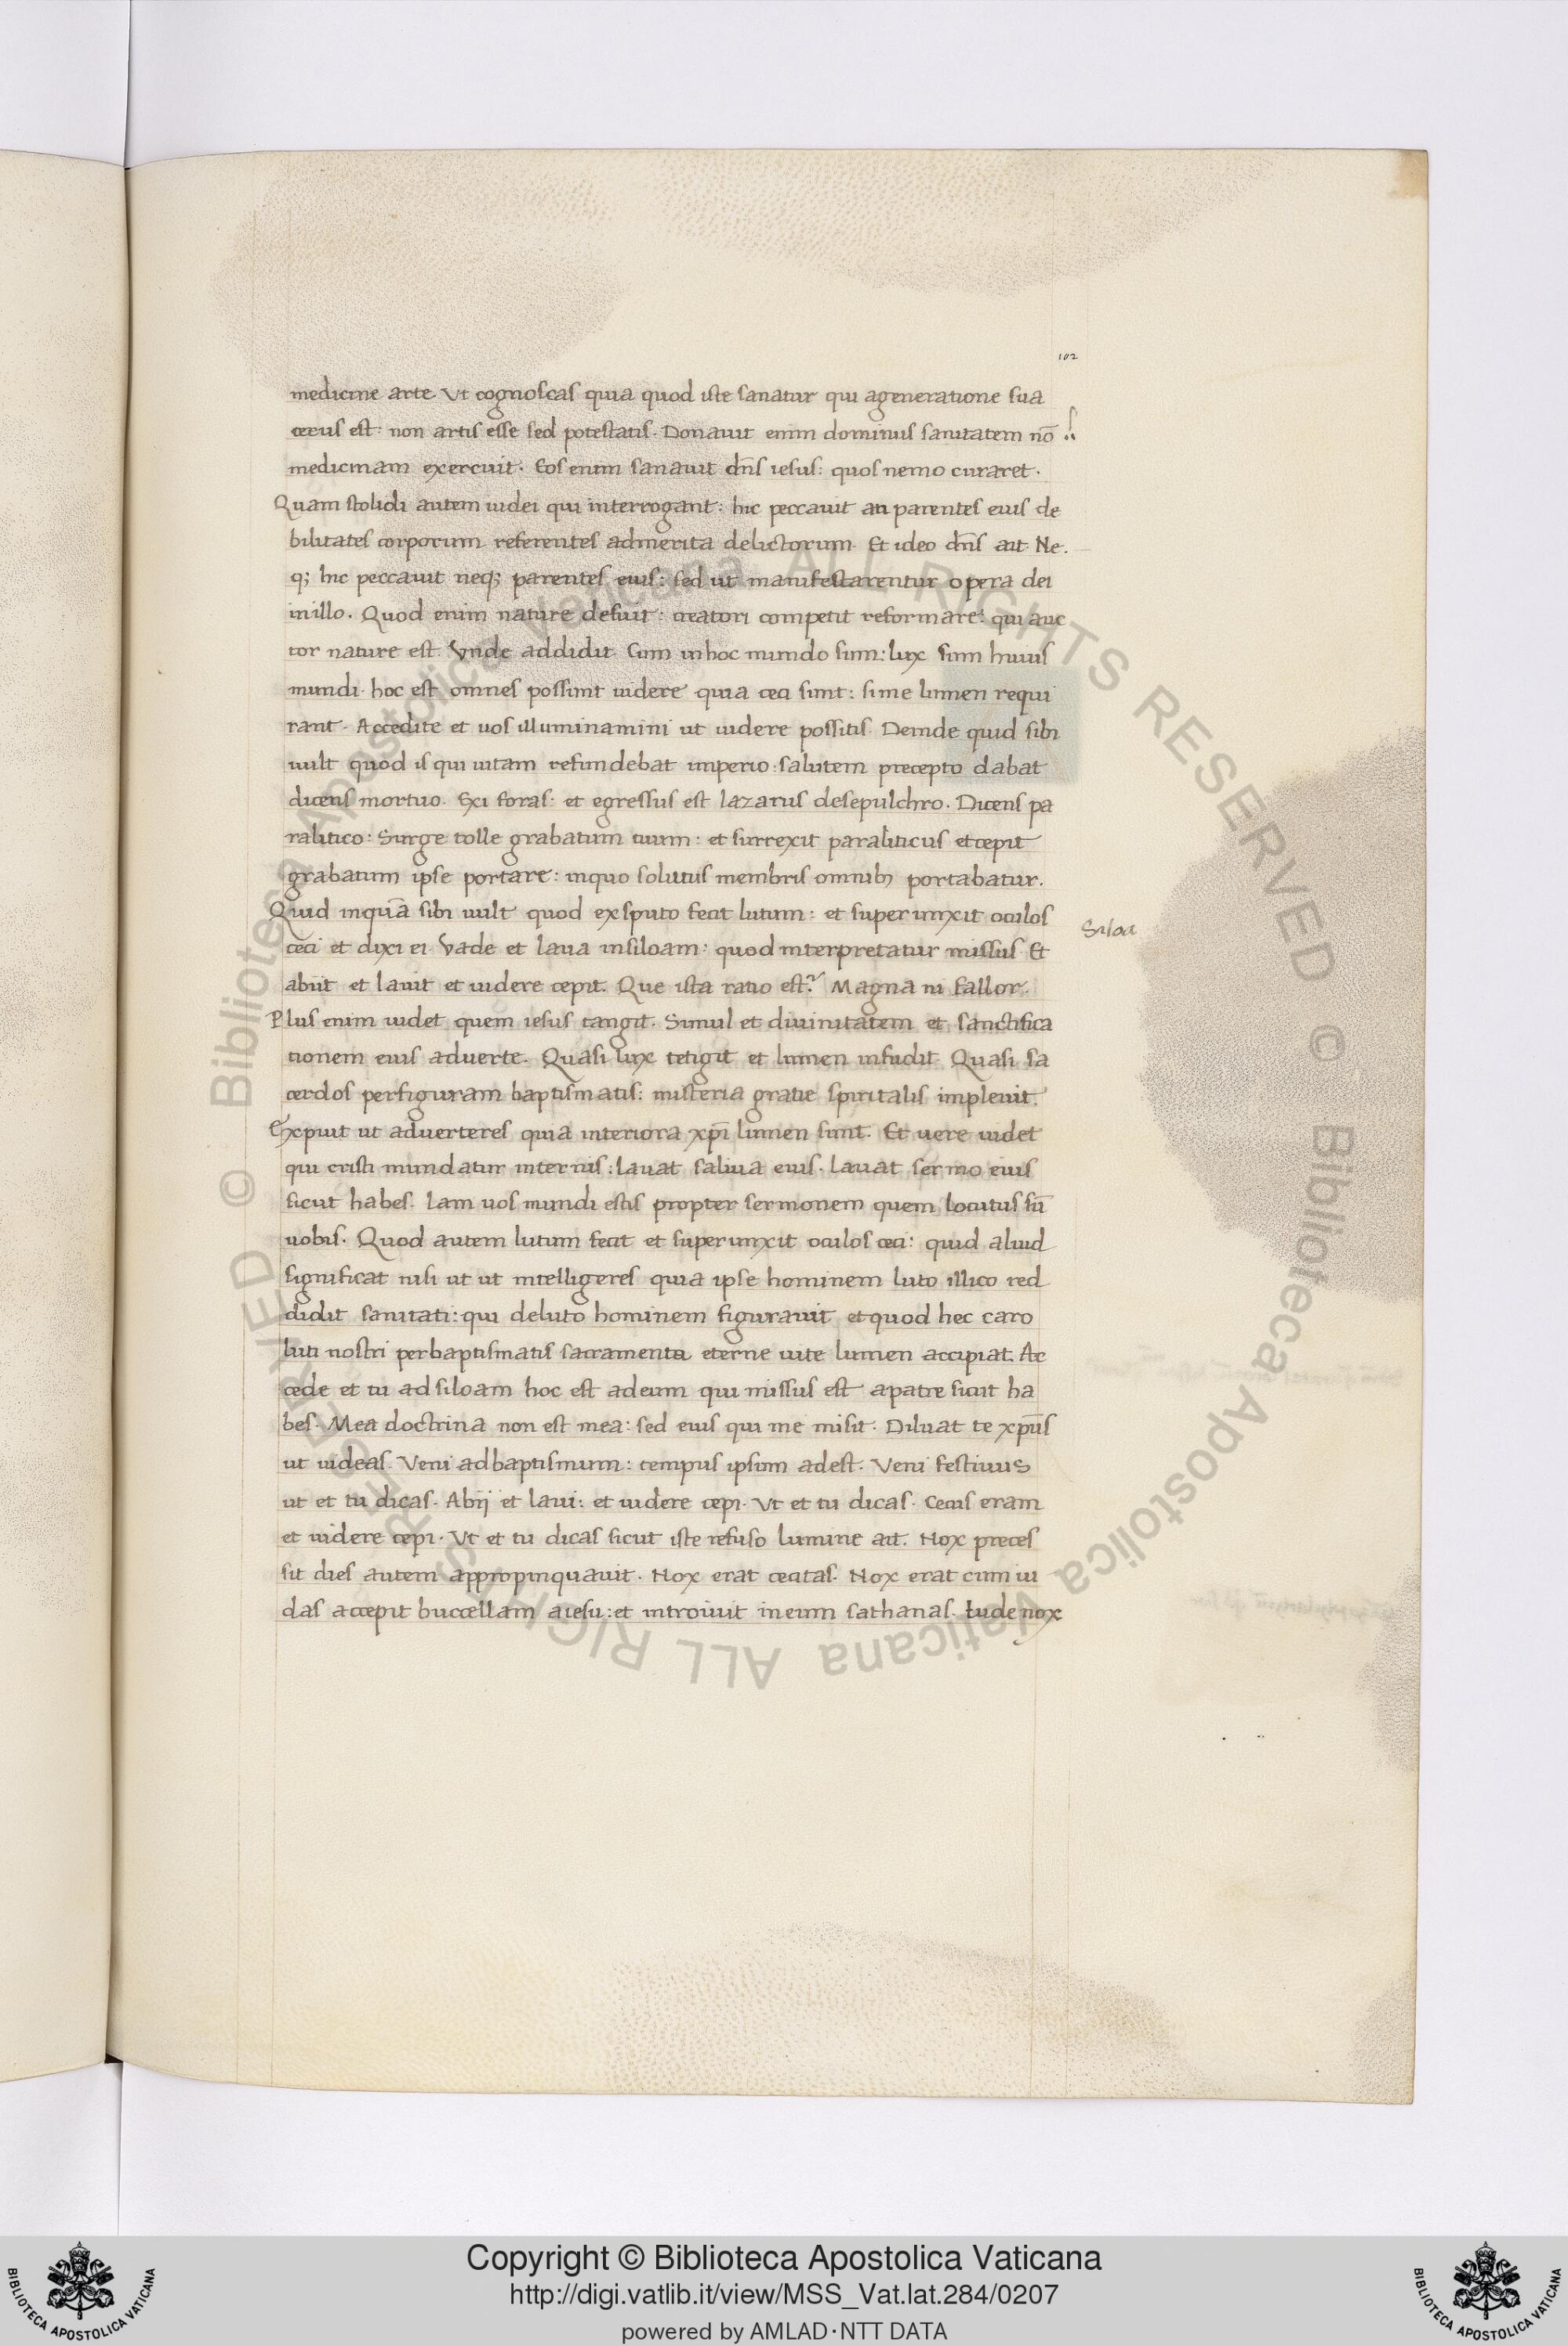 102
medicine arte. Vt cognoscas quia quod iste sanatur qui ageneratione sua
cecus est: non artis esse sed potestatis. Donauit enim dominus sanitatem nō
medicinam exercuit. Eos enim sanauit dn̄s iesus: quos nemo curaret.
Quam stolidi autem iudei qui interrogant: hic peccauit an parentes eius de
bilitates corporum referentes admerita delictorum. Et ideo dn̄s ait. Ne.
q; hic peccauit neq; parentes eius: sed ut manifestarentur opera dei
inillo. Quod enim nature defuit: creatori competit reformare: qui auc
tor nature est. Vnde addidit. Cum inhoc mundo sum: lux sum huius
mundi. hoc est omnes possunt uidere quia ceci sunt: si me lumen requi
rant. Accedite et uos illuminamini ut uidere possitis. Deinde quid sibi
uult quod is qui uitam refundebat imperio: salutem precepto dabat
dicens mortuo. Exi foras: et egressus est lazarus desepulchro. Dicens pa
ralitico: Surge tolle grabatum tuum: et surrexit paraliticus et cepit
grabatum ipse portare: inquo solutus membris omnib; portabatur.
Quid inquā sibi uult quod exsputo fecit lutum: et superunxit oculos
ceci et dixi ei Vade et laua insiloam: quod interpretatur missus. Et
Siloa
abiit et lauit et uidere cepit. Que ista ratio est? Magna ni fallor.
Plus enim uidet quem iesus tangit. Simul et diuinitatem et sanctifica
tionem eius aduerte. Quasi lux tetigit et lumen infudit. Quasi sa
cerdos perfiguram baptismatis: misteria gratie spiritalis impleuit.
Expuit ut aduerteres quia interiora xp̄i lumen sunt. Et uere uidet
qui cristi mundatur internis: lauat saliua eius. lauat sermo eius
sicut habes. Iam uos mundi estis propter sermonem quem locutus sū
uobis. Quod autem lutum fecit et superunxit oculos ceci: quid aliud
significat nisi ut ut intelligeres quia ipse hominem luto illico red
didit sanitati: qui deluto hominem figurauit et quod hec caro
luti nostri perbaptismatis sacramenta eterne uite lumen accipiat. Ac
cede et tu ad siloam hoc est adeum qui missus est apatre sicut ha
bes. Mea doctrina non est mea: sed eius qui me misit. Diluat te xp̄us
ut uideas. Veni adbaptismum: tempus ipsum adest. Veni festiuus
ut et tu dicas. Abij et laui: et uidere cepi. Vt et tu dicas. Cecus eram
et uidere cepi. Vt et tu dicas sicut iste refuso lumine ait. Nox preces
sit dies autem appropinquauit. Nox erat cecitas. Nox erat cum iu
das accepit buccellam aiesu: et introiuit ineum sathanas. Iude nox
Copyright © Biblioteca Apostolica Vaticana
http://digi.vatlib.it/view/MSS_Vat.lat.284/0207
powered by AMLAD·NTT DATA
BIBLIOTECA APOSTOLICA VATICANA
BIBLIOTECA APOSTOLICA VATICANA
© Biblioteca Apostolica Vaticana ALL RIGHTS RESERVED
© Biblioteca Apostolica Vaticana ALL RIGHTS RESERVED